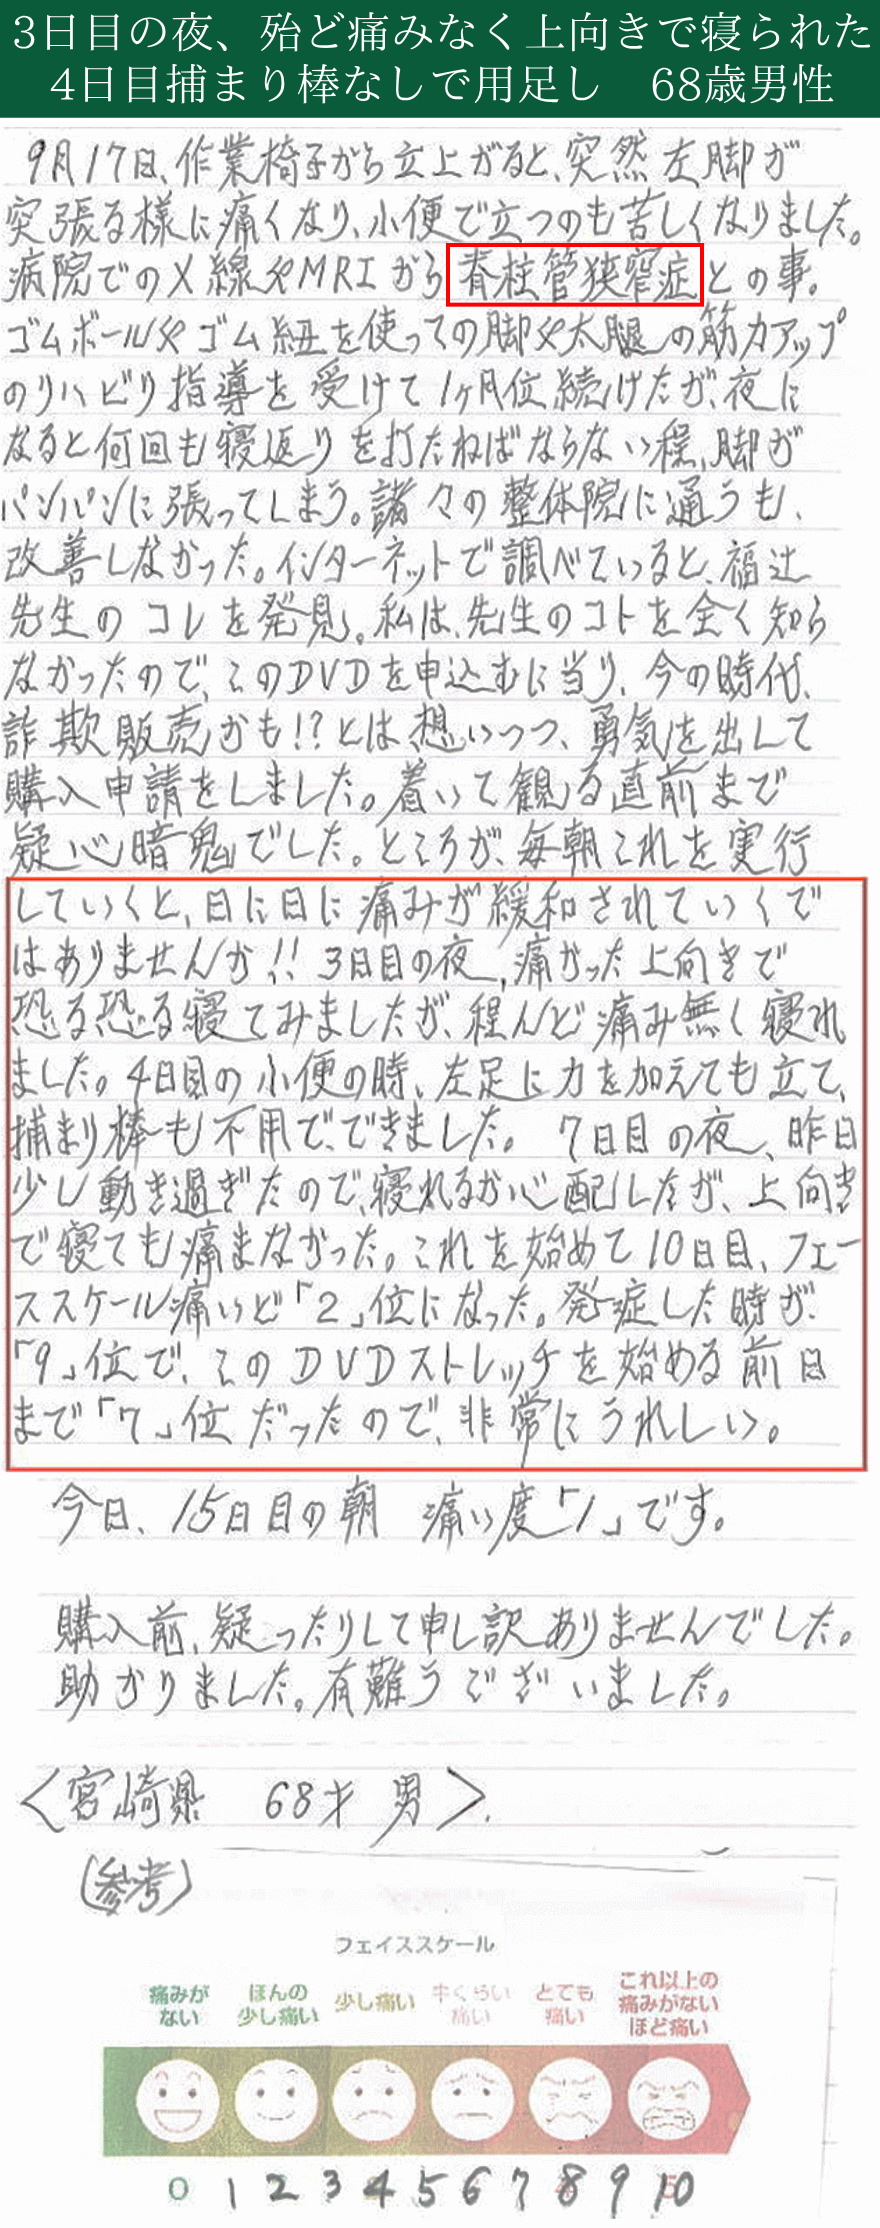 3日目の夜、殆ど痛みなく上向きで寝られた
4日目捕まり棒なしで用足し　68歳男性
9月17日、作業椅子から立上がると、突然左脚が
突張る様に痛くなり、小便で立つのも苦しくなりました。
病院でのX線やMRIから脊柱管狭窄症との事。
ゴムボールやゴム紐を使っての脚や太腿の筋力アップ
のリハビリ指導を受けて1ヶ月位続けたが、夜に
なると何回も寝返りを打たねばならない程、脚が
パンパンに張ってしまう。諸々の整体院に通うも、
改善しなかった。インターネットで調べていると、福辻
先生のコレを発見。私は、先生のコトを全く知ら
なかったので、このDVDを申込むに当り、今の時代、
詐欺販売かも!?とは想いつつ、勇気を出して
購入申請をしました。着いて観る直前まで
疑心暗鬼でした。ところが、毎朝これを実行
していくと、日に日に痛みが緩和されていくで
はありませんか!! 3日目の夜、痛かった上向きで
恐る恐る寝てみましたが、程んど痛み無く寝れ
ました。4日目の小便の時、左足に力を加えても立て、
捕まり棒も不用で、できました。 7日目の夜、昨日
少し動き過ぎたので、寝れるか心配したが、上向き
で寝ても痛まなかった。これを始めて10日目、フェー
ススケール痛いど「2」位になった。発症した時が、
「9」位で、このDVDストレッチを始める前日
まで「7」位だったので、非常にうれしい。
今日、15日目の朝　痛い度「1」です。
購入前、疑ったりして申し訳ありませんでした。
助かりました。有難うございました。
<宮崎県　68才 男>.
(参考)
フェイススケール
痛みが
ない
ほんの
少し痛い
少し痛い
半くらい
痛い
とても
痛い
これ以上の
痛みがない
ほど痛い
0 1 2 3 4 5 6 7 8 9 10